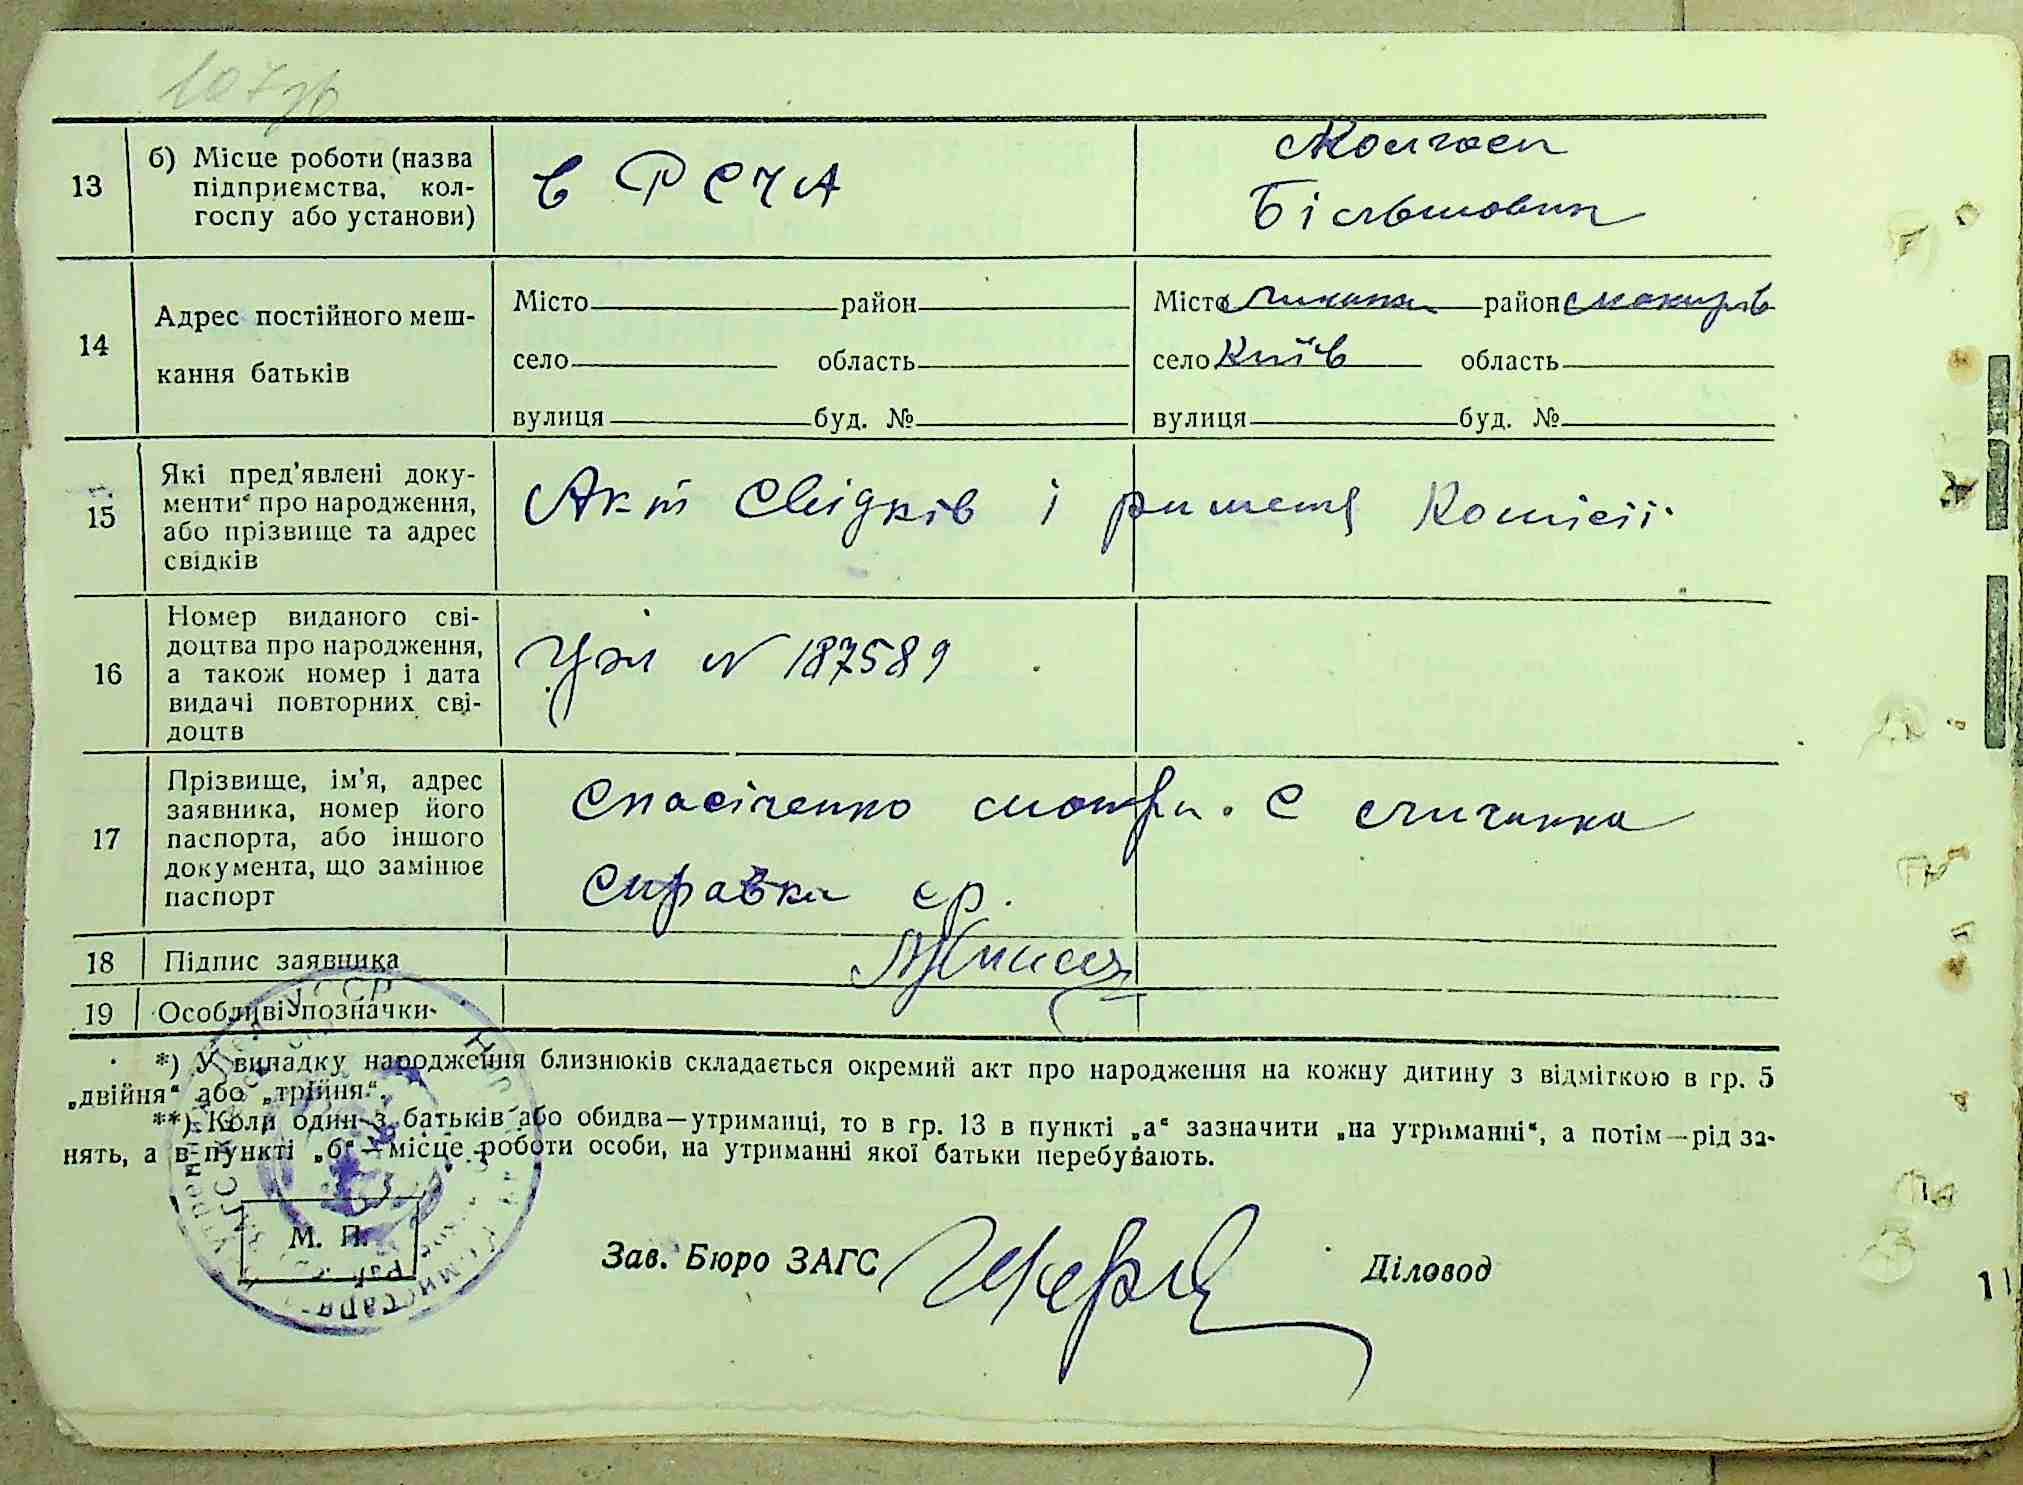 13
б) Місце роботи (назва
підприємства, кол-
госпу або установи)
в РСЧА
Колгосп
Більшовик
14
Адрес постійного меш-
кання батьків
Місто район
село область
вулиця буд. №
Місто район макарів
село Київ область
вулиця буд. №
15
Які пред'явлені доку-
менти про народження,
або прізвище та адрес
свідків
Акт Свідків і ришення Комісії
16
Номер виданого сві-
доцтва про народження,
а також номер і дата
видачі повторних сві-
доцтв
N 187589
17
Прізвище, ім'я, адрес
заявника, номер його
паспорта, або іншого
документа, що замінює
паспорт
с
справка ср.
18
Підпис заявника
19
Особливі позначки
*) У випадку народження близнюків складається окремий акт про народження на кожну дитину з відміткою в гр. 5
„двійня“ або „трійня“.
**) Коли один з батьків або обидва—утриманці, то в гр. 13 в пункті „а“ зазначити „на утриманні“, а потім—рід за-
нять, а в пункті „б“—місце роботи особи, на утриманні якої батьки перебувають.
М. П.
Зав. Бюро ЗАГС
Діловод